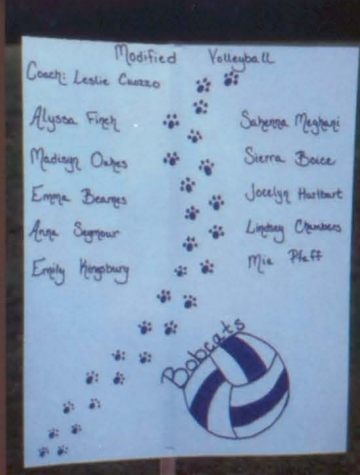 Modified Volleyball
Coach: Leslie Cuozzo
Alyssa Finch
Madisyn Oakes
Emma Beames
Anna Seymour
Emily Kingsbury
Sahenna Meghani
Sierra Boice
Jocelyn Hurlburt
Lindsey Chambers
Mia Pfaff
Bobcats